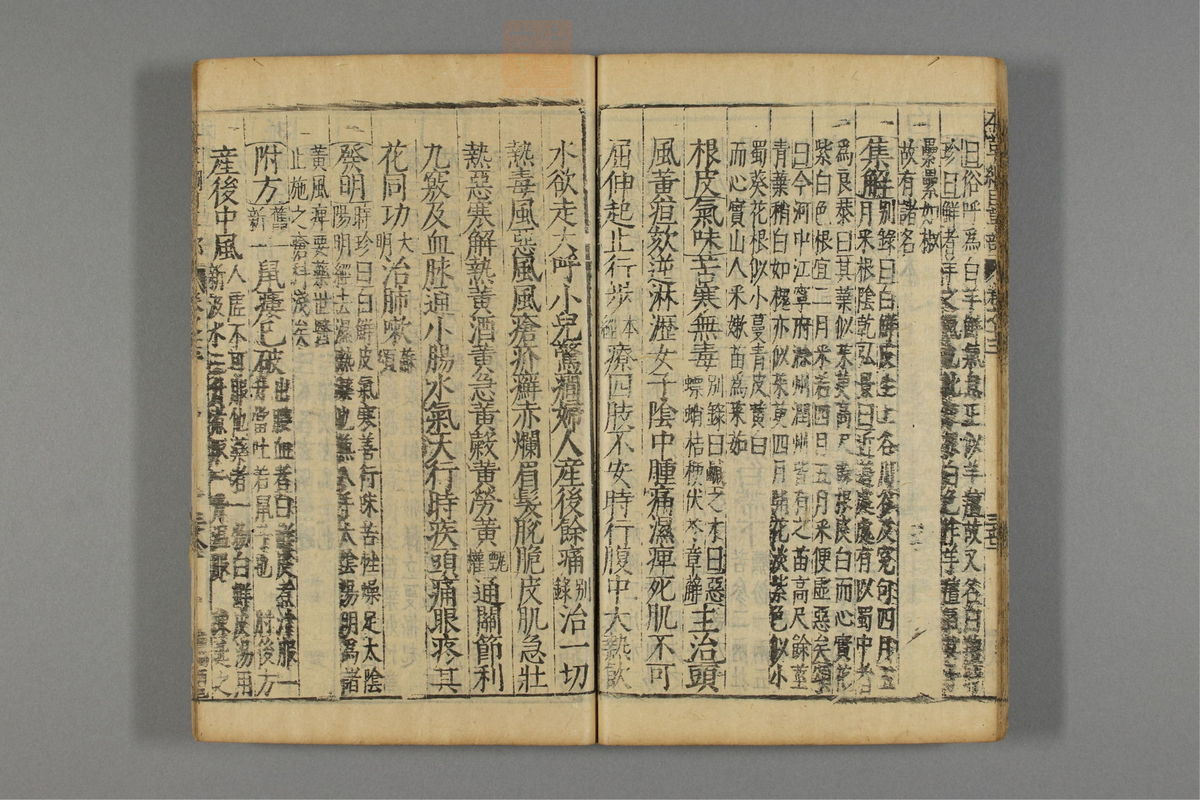 曰俗呼爲白羊鮮氣息正似羊羶故又名白羶
珍曰鮮者羊之氣也此草根白色作羊羶氣其子
纍纍如椒
故有諸名
集解別錄曰白鮮皮生上谷川谷及寃句四月五
月采根陰乾弘景曰近道處處有以蜀中者
爲良恭曰其葉似茱萸高尺餘根皮白而心實花
紫白色根宜二月采若四月五月采便虛惡矣頌
曰今河中江寧府滁州潤州皆有之苗高尺餘莖
青葉稍白如槐亦似茱萸四月開花淡紫色似小
蜀葵花根似小蔓青皮黃白
而心實山人采嫩苗爲菜茹
根皮氣味苦寒無毒別錄曰鹹之才曰惡
螵蛸桔梗伏苓萆薢主治頭
風黃疸欬逆淋瀝女子陰中腫痛濕痺死肌不可
屈伸起止行步本經療四肢不安時行腹中大熱飲
水欲走大呼小兒驚癎婦人產後餘痛別錄治一切
熱毒風惡風風瘡疥癬赤爛眉髮脫脆皮肌急壯
熱惡寒解熱黃酒黃急黃穀黃勞黃甄權通關節利
九竅及血脉通小腸水氣天行時疾頭痛眼疼其
花同功大明治肺嗽蘇頌
發明時珍曰白鮮皮氣寒善行味苦性燥足太陰
陽明經去濕熱藥也兼入手太陰陽明爲諸
黃風痺要藥世醫
止施之瘡科淺矣
附方舊一新一鼠瘻已破出膿血者白鮮皮煮汁服一
升當吐若鼠子也 肘後方
產後中風人虛不可服他藥者一物白鮮皮湯用
新汲水三升煮取一升温服